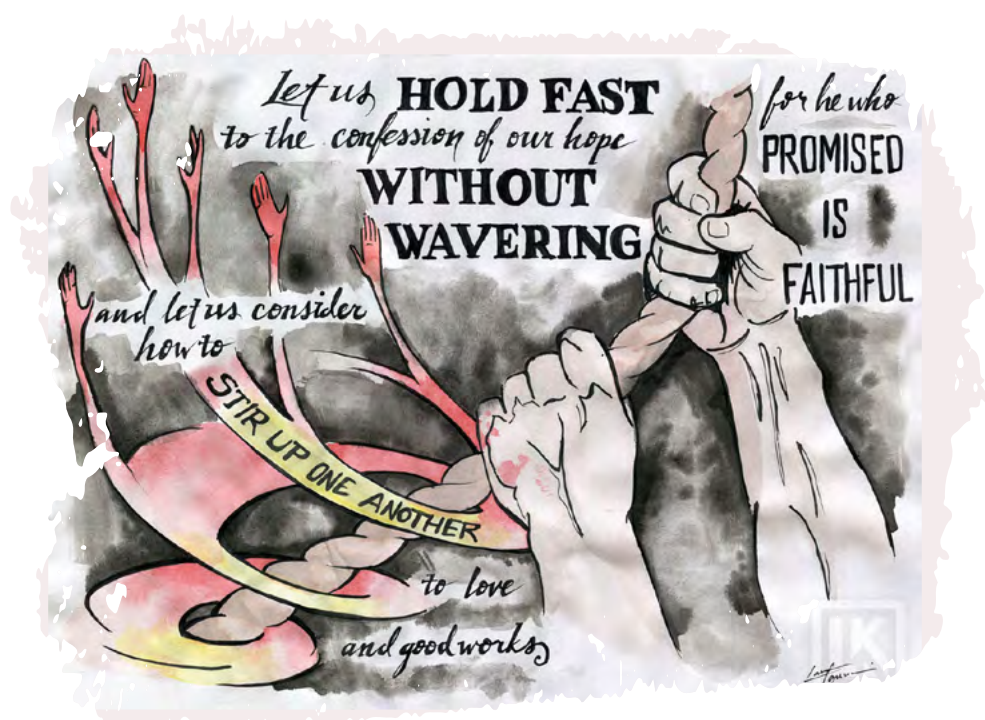 Let us HOLD FAST
to the confession of our hope
WITHOUT
WAVERING
for he who
PROMISED
IS
FAITHFUL
and let us consider
how to
STIR UP ONE ANOTHER
to love
and good works,